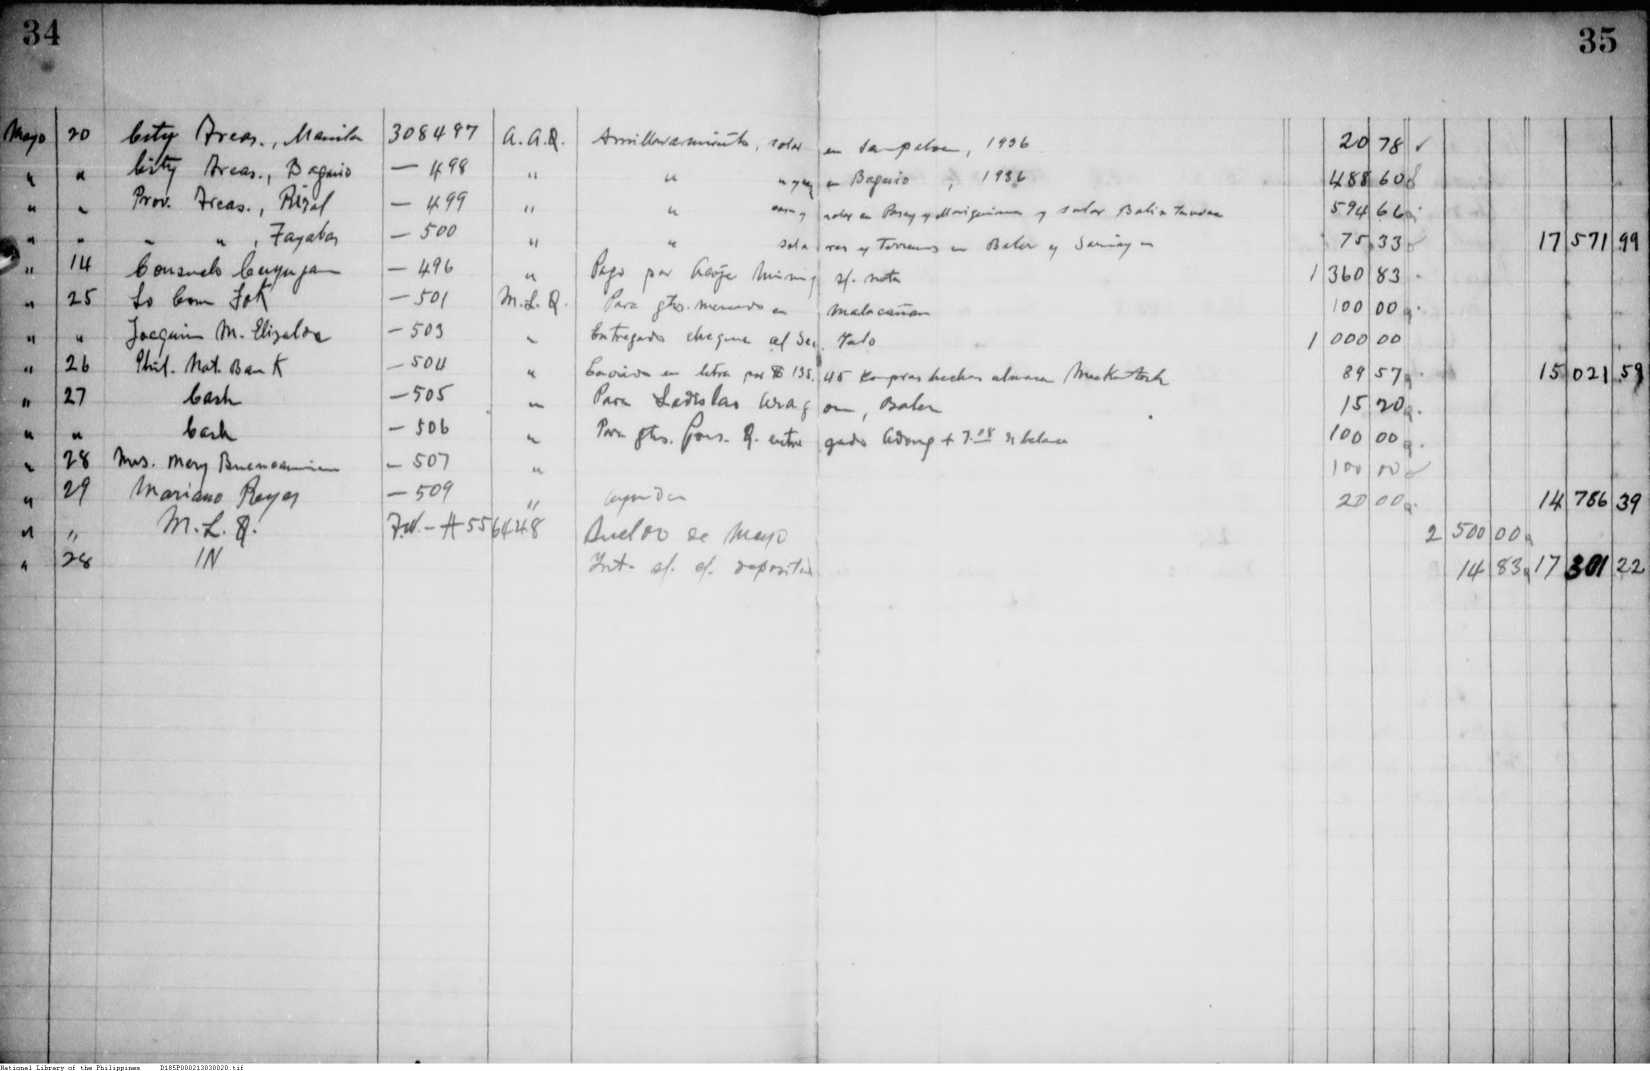 34
35
Mayo 20 City Treas., Manila 308497 A.A.Q. Amillaramiento, solar en Sampaloc, 1936 20 78
" " City Treas., Baguio — 498 " " " en Baguio, 1936 488 60
" " Prov. Treas., Rizal — 499 " " casa y solar en Pasay y Mariquina y solar 594 66
" " " ", Tayabas — 500 " " solares y terrenos en Baler y 75 33 17 571 99
" 14 Consuelo Cuyugan — 496 " Pago por Acoje Mining s/. nota 1 360 83
" 25 Lo Com Fok — 501 M.L.Q. Para gts. menudo en Malacañan 100 00
" " Joaquin M. Elizalde — 503 " Entregado cheque al Sec. Yulo 1 000 00
" 26 Phil. Nat. Bank — 504 " en letra por 135.45 compras hechas 89 57 15 021 59
" 27 Cash — 505 " Para Ladislao Aragon, Baler 15 20
" " Cash — 506 " Para gts. Q. entregado Adong + 7.08 balance 100 00
" 28 Mrs. Mary Buencamino — 507 " 100 00
" 29 Mariano Reyes — 509 " ayuda 20 00 14 786 39
" " M.L.Q. T.W.-A 556448 Sueldo de Mayo 2 500 00
" 28 IN Int. s/. c/. deposito 14 83 17 301 22
National Library of the Philippines D185P000213030020.tif